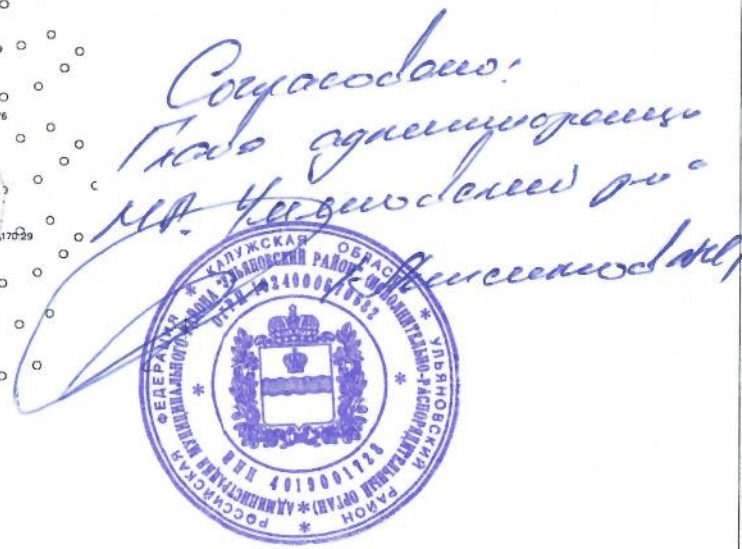 Согласовано:
Глава администрации
МР. Ульяновский р-н
170:29
РОССИЙСКАЯ ФЕДЕРАЦИЯ * КАЛУЖСКАЯ ОБЛАСТЬ * УЛЬЯНОВСКИЙ РАЙОН *
АДМИНИСТРАЦИЯ МУНИЦИПАЛЬНОГО РАЙОНА "УЛЬЯНОВСКИЙ РАЙОН" (ИСПОЛНИТЕЛЬНО-РАСПОРЯДИТЕЛЬНЫЙ ОРГАН) *
ОГРН
ИНН 4019001723